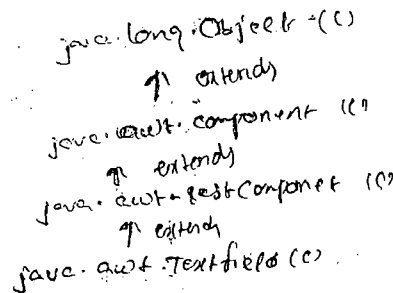 java.long.Object-(C)
↑ extends
java.awt.component (C)
↑ extends
java.awt.TestComponet (C)
↑ extends
java.awt.Textfield (C).